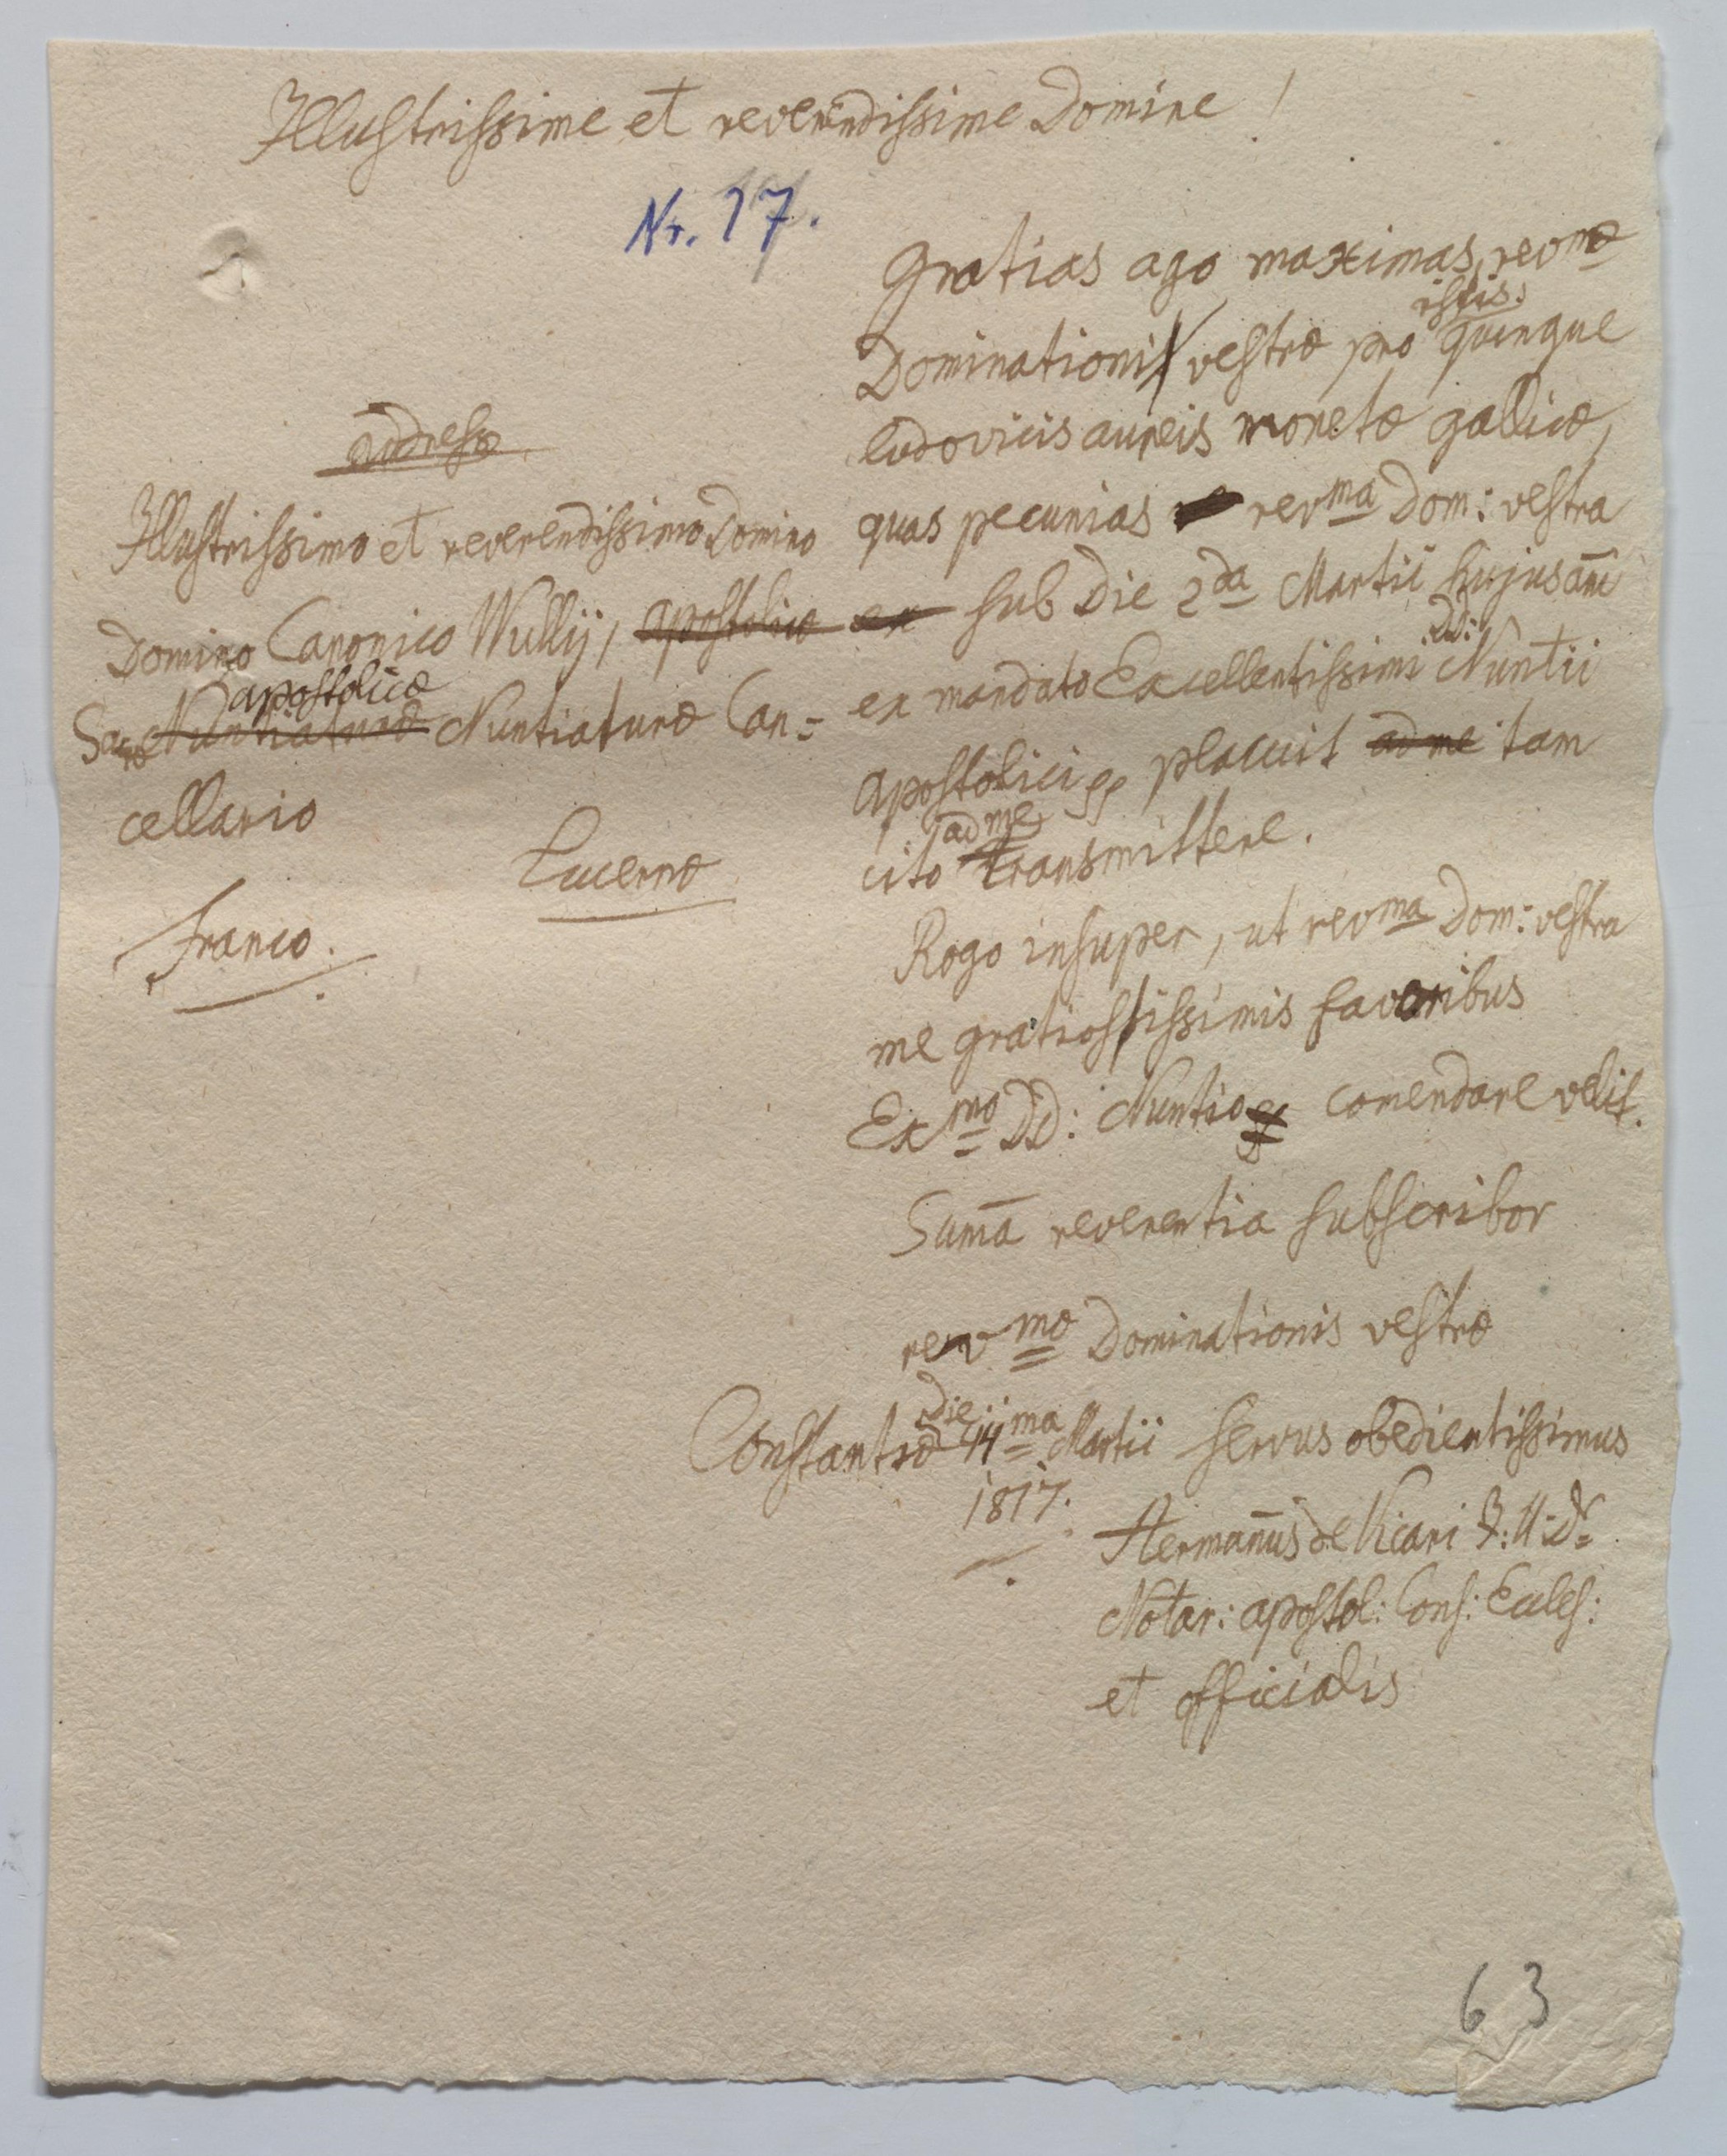 Illustrissime et reverendissime Domine!
Nr. 17.
Gratias ago maximas revmæ
istis.
Dominationi vestræ pro quinque
ludovicis aureis monetæ gallicæ,
quas pecunias revma Dom: vestra
sub die 2da Martii hujus añi
DD:
ex mandato Excellentissimi Nuntii
Apostolici placuit ad me tam
ad me
cito transmittere.
Rogo insuper, ut revma Dom: vestra
me gratiosissimis favoribus
Exmo DD: Nuntio comendare velit.
Sum̄a reverentia subscribor
revmæ Dominationis vestræ
die
Constantiæ 14ma Martii servus obedientissimus
1817.
Herman̄us de Vicari J: U: Dr
Notar: apostol: Cons: Eccles:
et officialis
addresse
Illustrissimo et reverendissimo Domino
Domino Canonico Wullij, apostolicæ
apostolicæ
Sacræ Nuntiaturæ Nuntiaturæ Can=
cellario
Lucernæ
Franco.
63